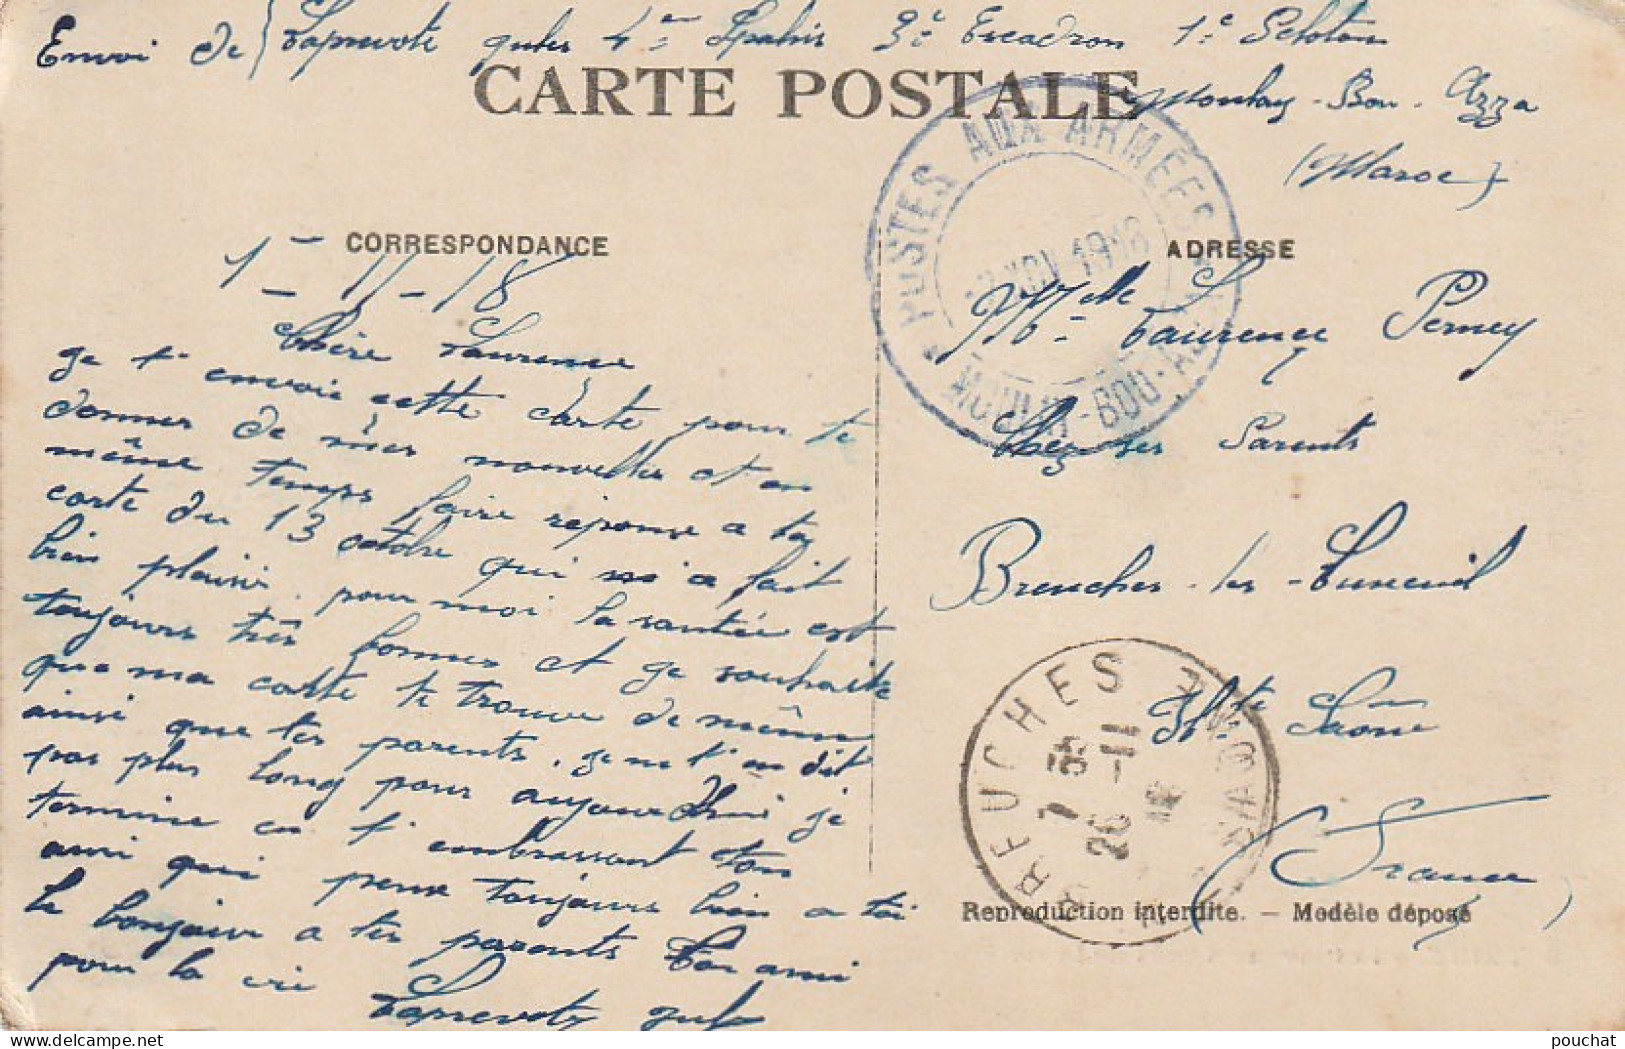 Envoi de Laprevote jules 4e Spahis 3e Escadron 1e Peloton
CARTE POSTALE
Moulay-Bou-Azza
(Maroc)
POSTES AUX ARMEES
NOV 1918
MOULAY-BOU-AZZA
CORRESPONDANCE
1-11-18
Chère Laurence
je t'envoi cette carte pour te
donner de mes nouvelles et en
même temps faire réponse a ta
carte du 13 octobre qui m'a fait
bien plaisir. pour moi la santée est
toujours très bonnes et je souhaite
que ma carte te trouve de même
ainsi que tes parents. je ne t'en dit
pas plus long pour aujourd'hui je
termine en t'embrassant ton
ami qui pense toujours bien a toi
le bonjour a tes parents Ton ami
pour la vie Laprevote jules
ADRESSE
Melle Laurence Perney
Chez ses Parents
Breuches-les-Luxeuil
Hte Saône
(France)
BREUCHES
7 35
26-11
18
Hte SAONE
Reproduction interdite. — Modèle déposé
pouchat